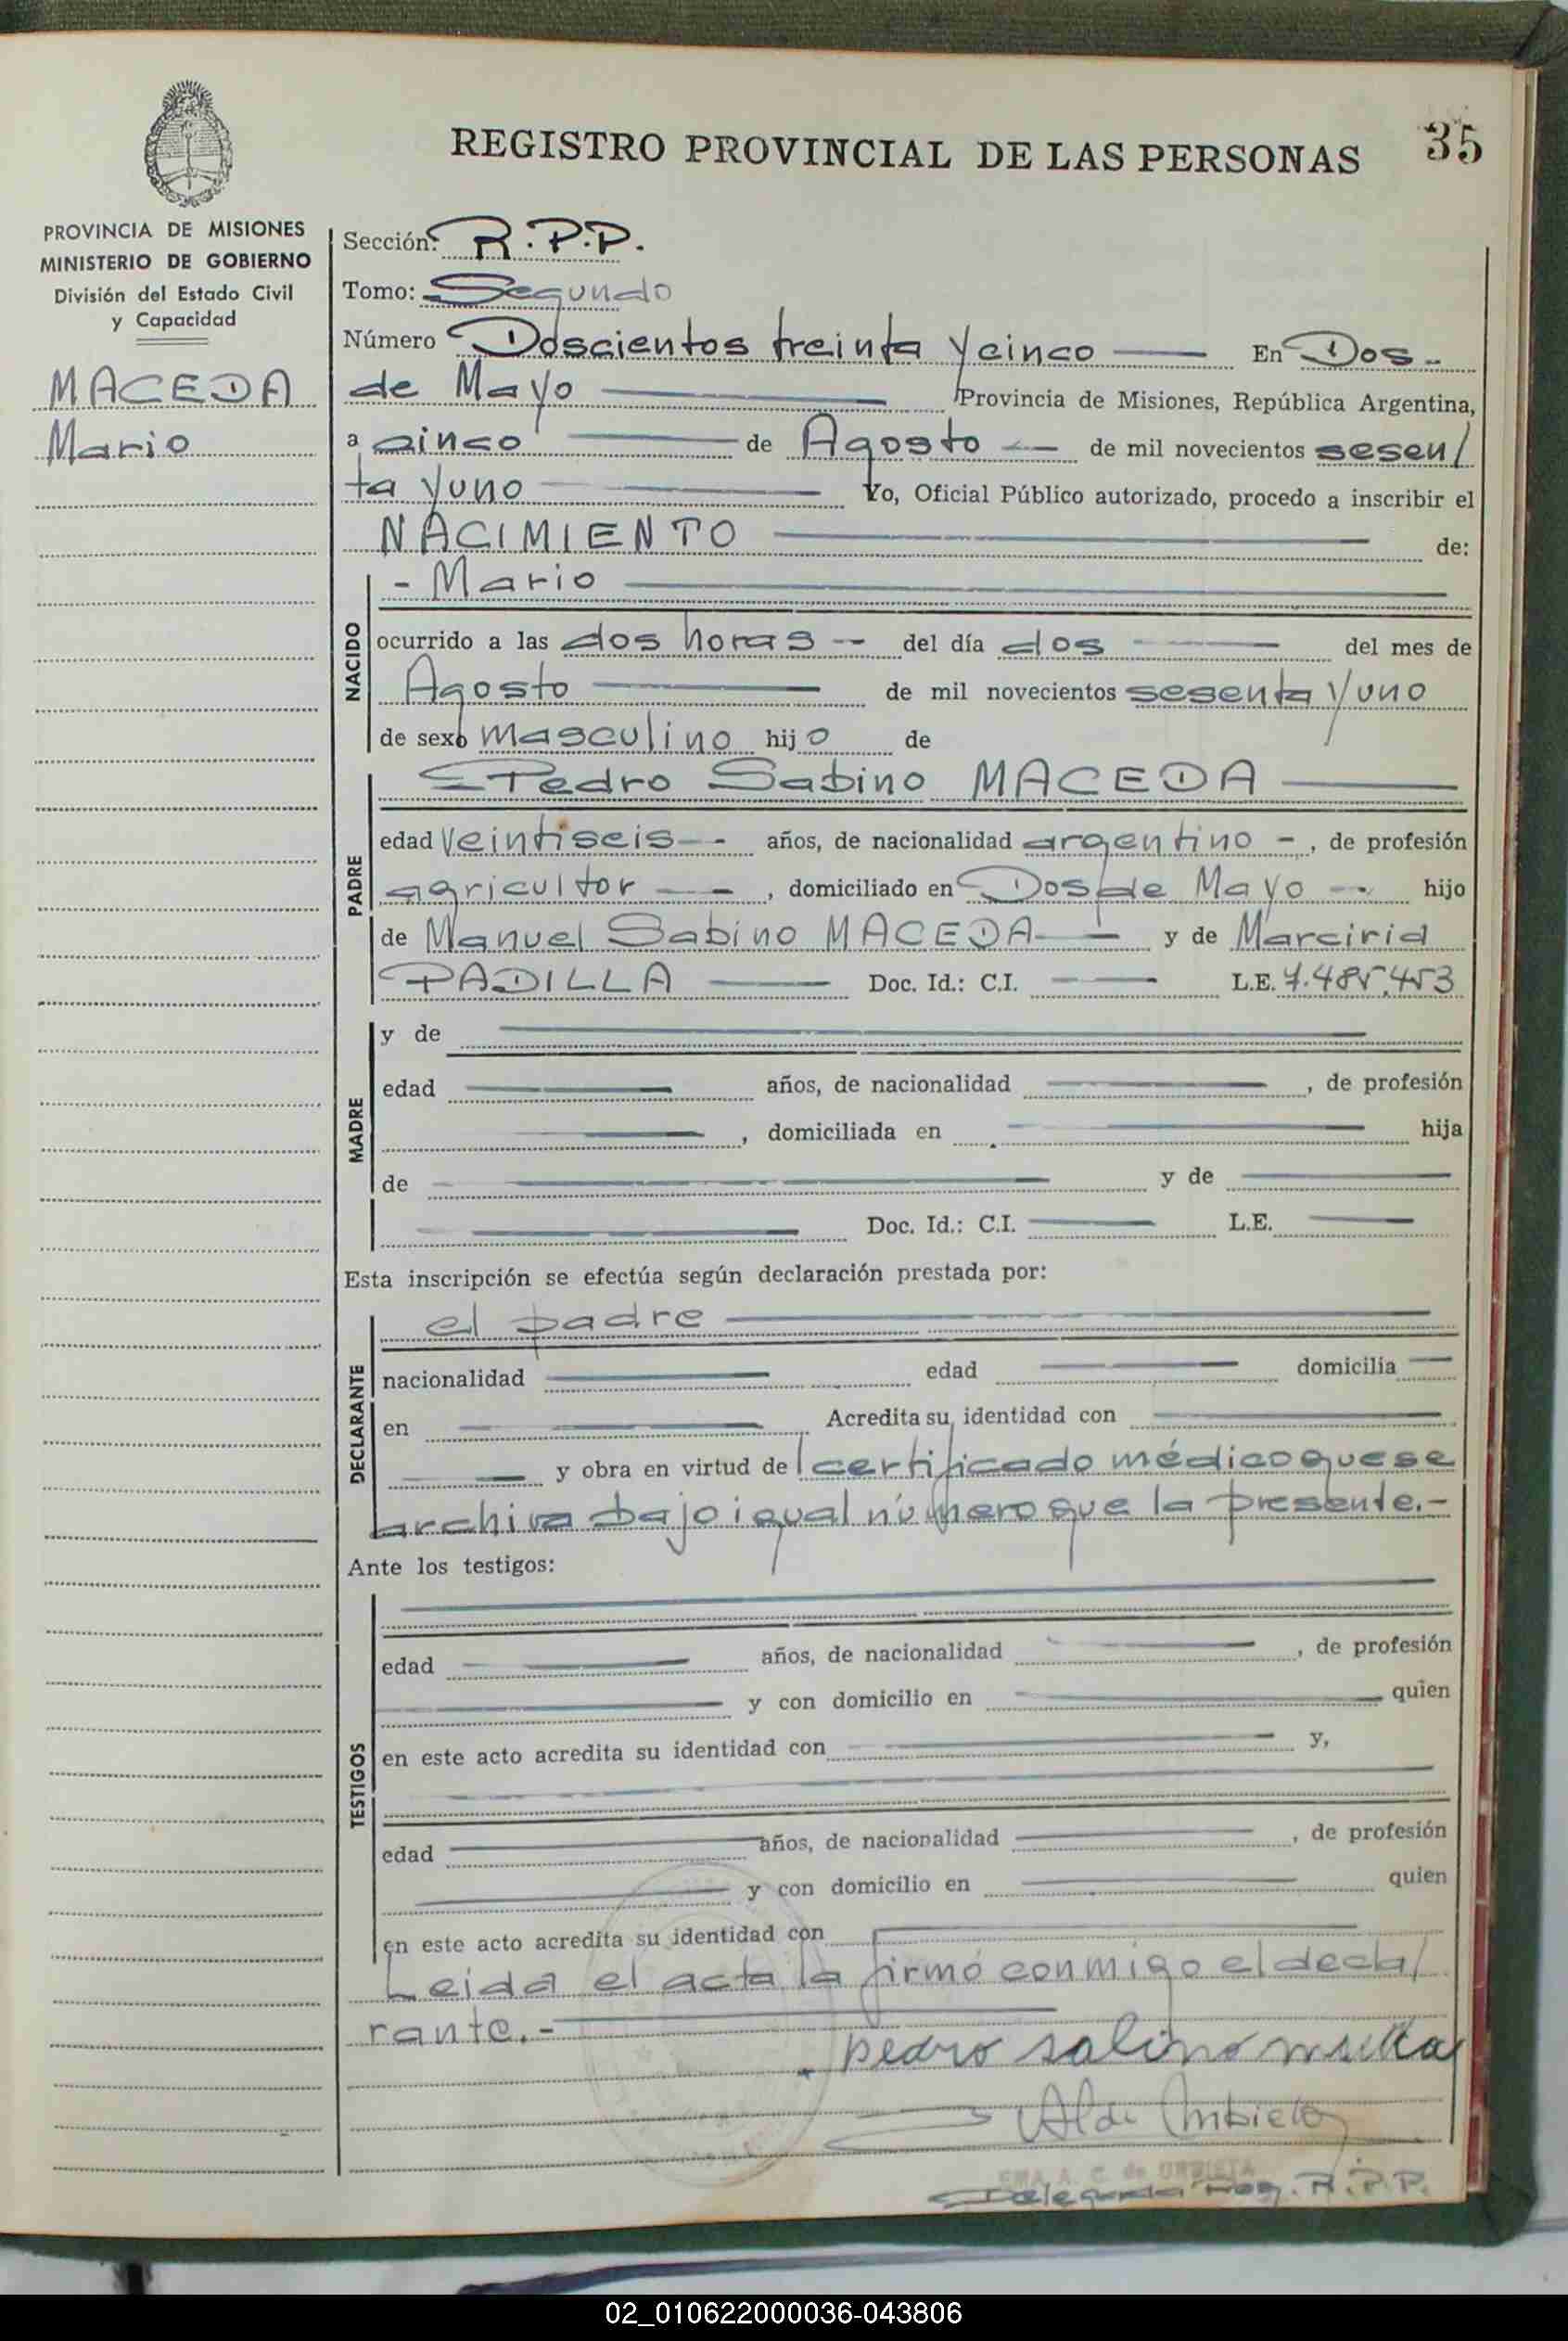 REGISTRO PROVINCIAL DE LAS PERSONAS 35
PROVINCIA DE MISIONES
MINISTERIO DE GOBIERNO
División del Estado Civil
y Capacidad
MACEDA
Mario
Sección: R.P.P.
Tomo: Segundo
Número Doscientos treinta y cinco En Dos
de Mayo Provincia de Misiones, República Argentina,
a cinco de Agosto de mil novecientos sesen/
ta y uno Yo, Oficial Público autorizado, procedo a inscribir el
NACIMIENTO de:
- Mario
NACIDO
ocurrido a las dos horas del día dos del mes de
Agosto de mil novecientos sesenta y uno
de sexo masculino hijo de
Pedro Sabino MACEDA
PADRE
edad veintiseis años, de nacionalidad argentino , de profesión
agricultor , domiciliado en Dos de Mayo hijo
de Manuel Sabino MACEDA y de Marcirid
PADILLA Doc. Id.: C.I. L.E. 7.485.453
MADRE
y de
edad años, de nacionalidad , de profesión
, domiciliada en hija
de y de
Doc. Id.: C.I. L.E.
Esta inscripción se efectúa según declaración prestada por:
el padre
DECLARANTE
nacionalidad edad domicilia
en Acredita su identidad con
y obra en virtud del certificado médico que se
archiva bajo igual número que la presente.-
Ante los testigos:
TESTIGOS
edad años, de nacionalidad , de profesión
y con domicilio en quien
en este acto acredita su identidad con y,
edad años, de nacionalidad , de profesión
y con domicilio en quien
en este acto acredita su identidad con
Leida el acta la firmó conmigo el decla/
rante.-
pedro salino
A. C. de URBIETA
Delegada R.P.P.
02_010622000036-043806